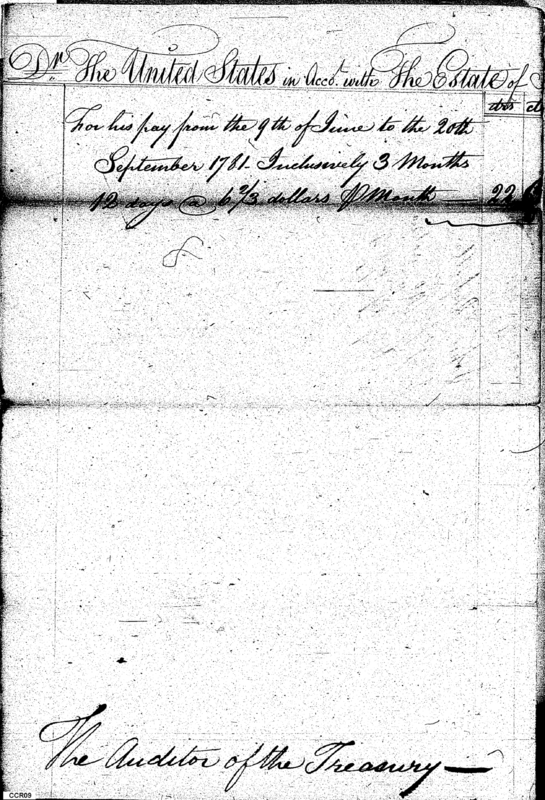 Dr. The United States in Acco.t with The Estate of
dols
For his pay from the 9th of June to the 20th
September 1781 Inclusively 3 Months
12 days @ 6 2/3 dollars ⅌ Month — 22
The Auditor of the Treasury —
CCR09